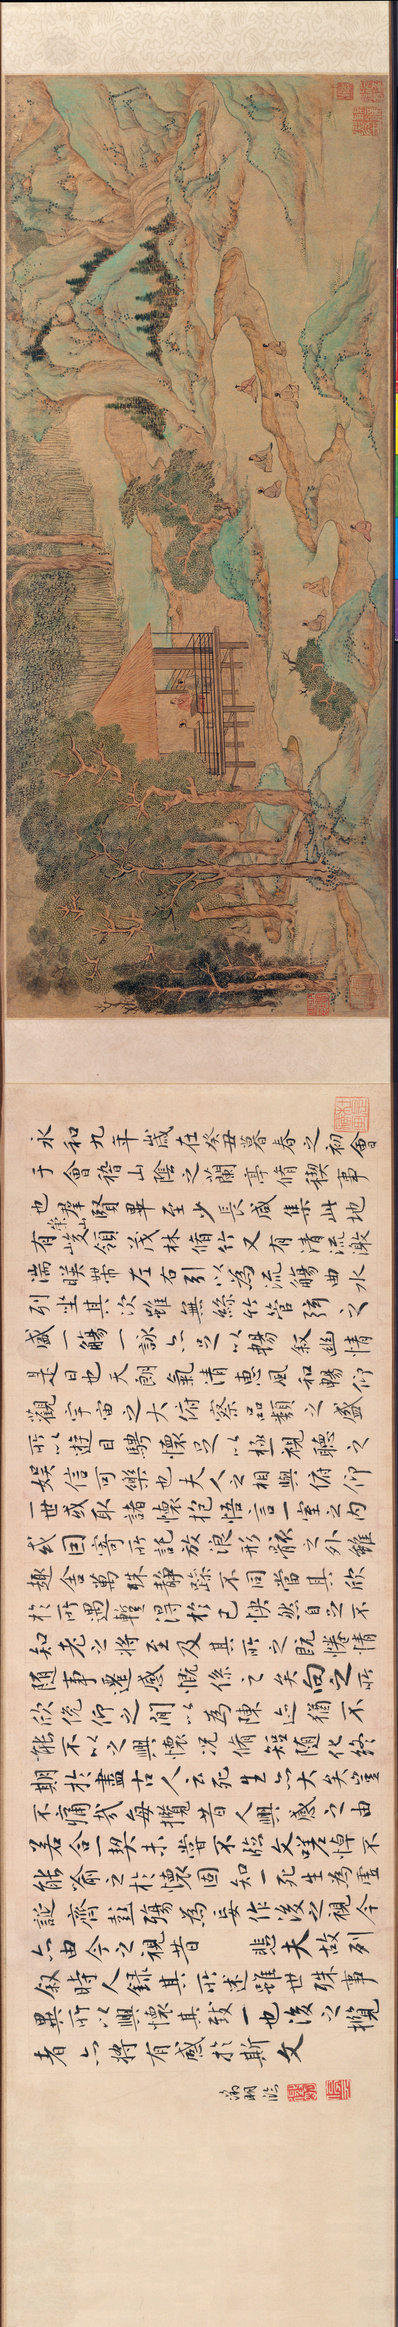 永和九年歲在癸丑暮春之初會
于會稽山陰之蘭亭脩禊事
也群賢畢至少長咸集此地
有崇山峻領茂林脩竹又有清流激
湍暎帶左右引以為流觴曲水
列坐其次雖無絲竹管弦之
盛一觴一詠亦足以暢敘幽情
是日也天朗氣清惠風和暢仰
觀宇宙之大俯察品類之盛
所以遊目騁懷足以極視聽之
娛信可樂也夫人之相與俯仰
一世或取諸懷抱悟言一室之內
或因寄所託放浪形骸之外雖
趣舍萬殊靜躁不同當其欣
於所遇暫得於己怏然自足不
知老之將至及其所之既惓情
隨事遷感慨係之矣向之所
欣俛仰之間以為陳迹猶不
能不以之興懷況脩短隨化終
期於盡古人云死生亦大矣豈
不痛哉每攬昔人興感之由
若合一契未嘗不臨文嗟悼不
能喻之於懷固知一死生為虛
誕齊彭殤為妄作後之視今
亦由今之視昔 悲夫故列
敘時人錄其所述雖世殊事
異所以興懷其致一也後之攬
者亦將有感於斯文
徵明臨